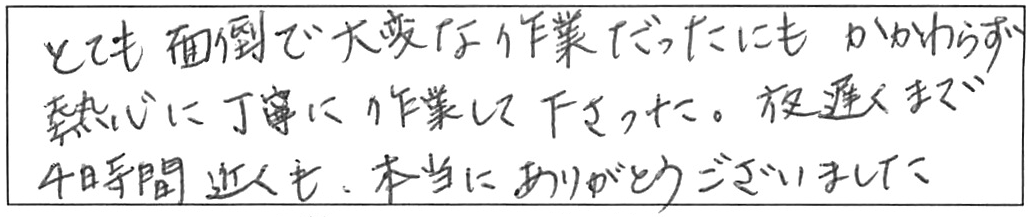 とても面倒で大変な作業だったにもかかわらず
熱心に丁寧に作業して下さった。夜遅くまで
4時間近くも、本当にありがとうございました